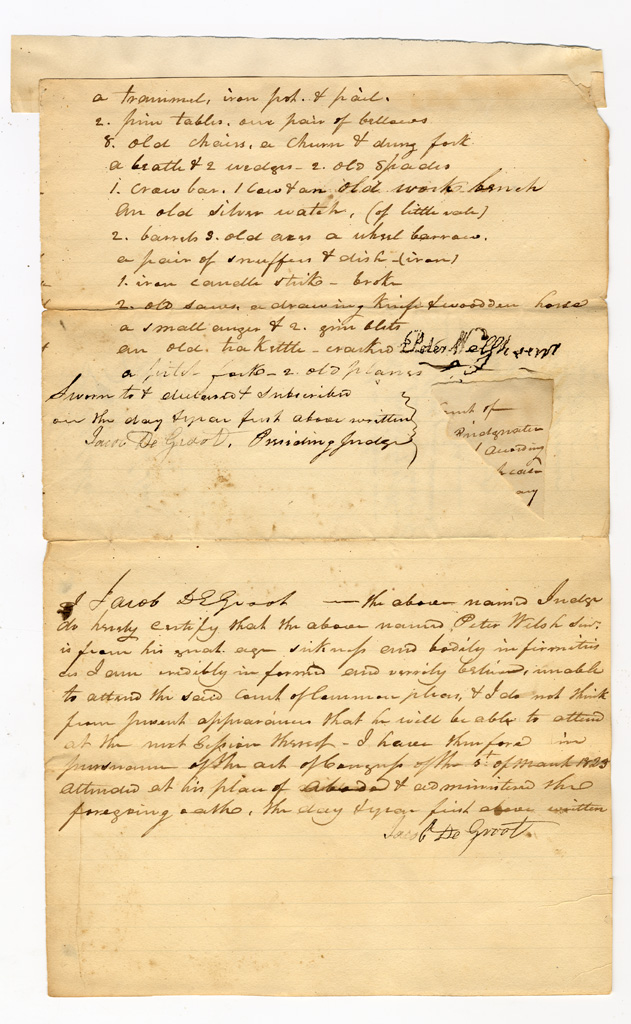 a trammel, iron pot. & pail.
2. pine tables. one pair of bellows
8. old chairs, a churn & dung fork
a beatle & 2 wedges - 2. old spades
1. crow bar. 1 saw & an old work bench
an old silver watch, (of little vale)
2. barrels 3. old axes a wheel barrow.
a pair of snuffers & dish - (iron)
1. iron candle stick - broke
2. old saws, a drawing knife & woodden horse
a small auger & 2. gimblets
an old teakettle - cracked Peter Welsh
a fork - 2. old planes
Sworn to & declared & subscribed
on the day & year first above written
Jacob De Groot. Presiding Judge
Court of
according
I Jacob DeGroot — the above named Judge
do hereby certify that the above named Peter Welsh Senr.
is from his great age sickness and bodily infirmities
as I am credibly informed and verily believe, unable
to attend the said Court of Common pleas, & I do not think
from present appearances that he will be able to attend
at the next Session thereof - I have therefore in
pursuance of the act of Congress of the 1st of March 1823
attended at his place of abode & administered the
foregoing oathe. the day & year first above written
Jacob De Groot